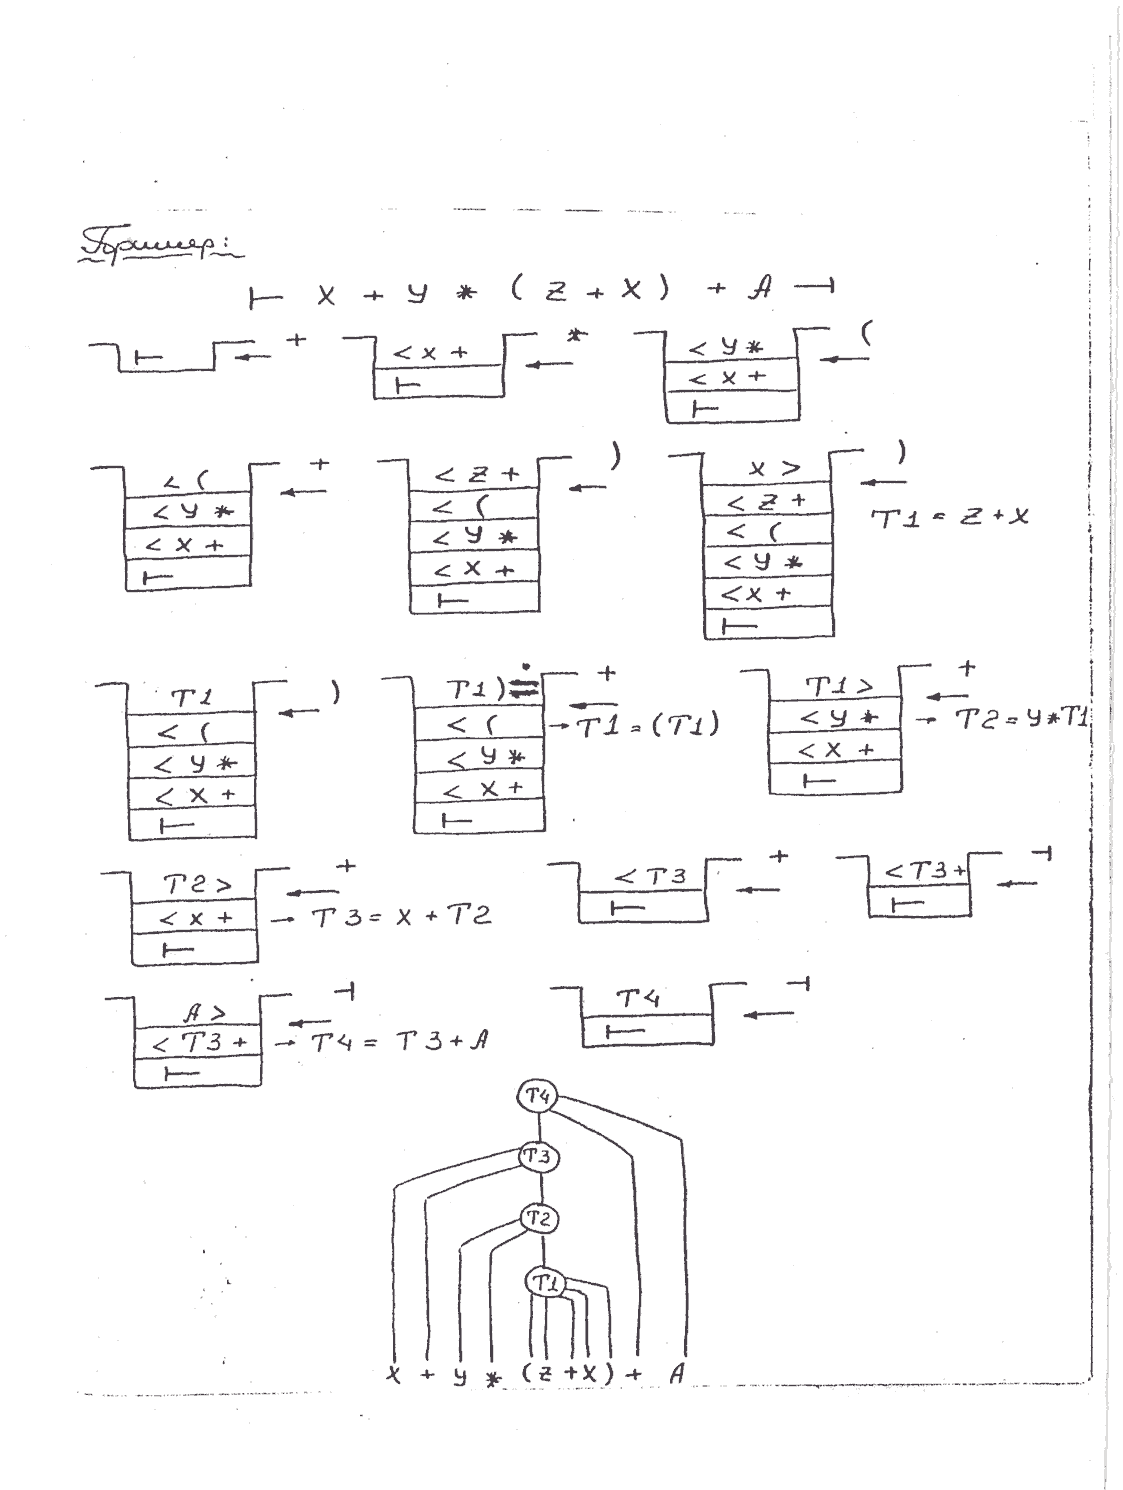 Пример:
⊢ X + Y * ( Z + X ) + A ⊣
⊢ ← +
< X + ← *
⊢
< Y * ← (
< X +
⊢
< ( ← +
< Y *
< X +
⊢
< Z + ← )
< (
< Y *
< X +
⊢
X > ← )
< Z + T1 = Z + X
< (
< Y *
< X +
⊢
T1 ← )
< (
< Y *
< X +
⊢
T1 ) ≐ ← +
< ( → T1 = (T1)
< Y *
< X +
⊢
T1 > ← +
< Y * → T2 = Y * T1
< X +
⊢
T2 > ← +
< X + → T3 = X + T2
⊢
< T3 ← +
⊢
< T3 + ← ⊣
⊢
A > ← ⊣
< T3 + → T4 = T3 + A
⊢
T4 ← ⊣
⊢
T4
T3
T2
T1
X + Y * ( Z + X ) + A